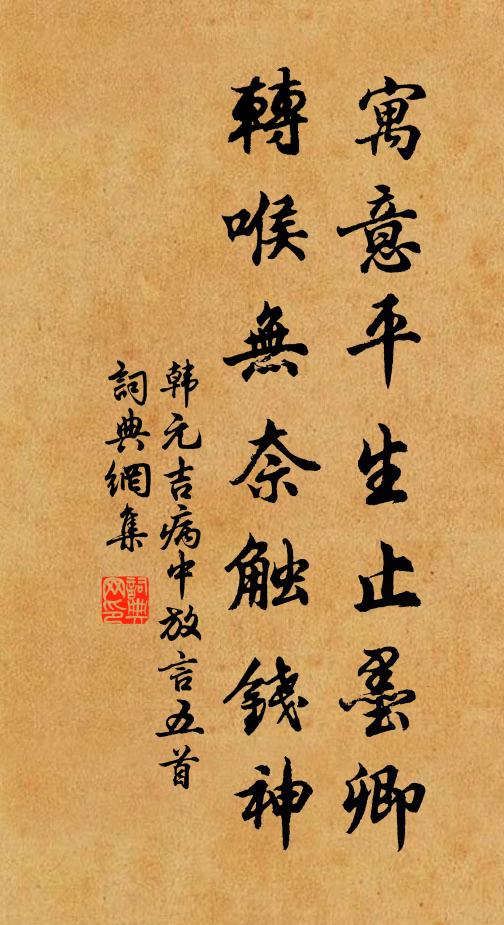 寓意平生止墨卿
轉喉無奈触錢神
韩元吉病中放言五首
詞典網集
詞典网印